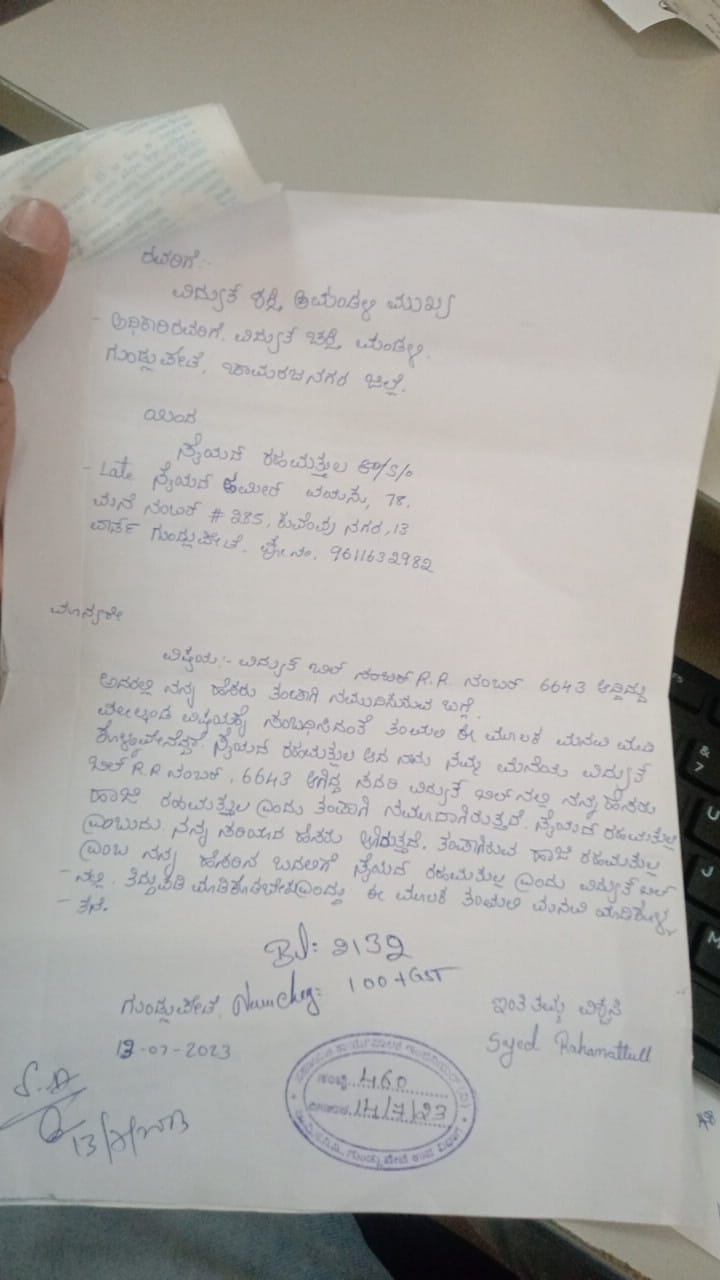 ರವರಿಗೆ:-
ವಿದ್ಯುತ್ ಶಕ್ತಿ ಮಂಡಳಿ ಮುಖ್ಯ
- ಅಧಿಕಾರಿರವರಿಗೆ. ವಿದ್ಯುತ ಮಂಡಳಿ.
ಗುಂಡ್ಲುಪೇಟೆ, ಚಾಮರಾಜನಗರ ಜಿಲ್ಲೆ.
ಯಿಂದ
ಸೈಯದ್ ರಹಮತ್ತುಲ S/o
- Late ಸೈಯದ್ ಹಮೀರ್ ವಯಸು, 78.
ಮನೆ ನಂಬರ್ # 285, ಕುವೆಂಪು ನಗರ, 13
ವಾರ್ಡ್ ಗುಂಡ್ಲುಪೇಟೆ. ಫೋ.ನಂ. 9611632982
ಮಾನ್ಯರೇ
ವಿಷಯ:- ವಿದ್ಯುತ್ ಬಿಲ್ ನಂಬರ್ R.R. ನಂಬರ್ 6643 ಆಗಿದ್ದು
ಅದರಲ್ಲಿ ನನ್ನ ಹೆಸರು ತಪಾಗಿ ನಮೂದಿಸಿರುವ ಬಗ್ಗೆ.
ಮೇಲ್ಕಂಡ ವಿಷಯಕ್ಕೆ ಸಂಬಧಿಸಿದಂತೆ ತಮಲಿ ಈ ಮೂಲಕ ಮನವಿ ಮಾಡಿ
ಕೊಳ್ಳುವೇನೆಂದ್ರೆ. ಸೈಯದ್ ರಹಮತ್ತುಲ ಆದ ನಾನು ನಮ್ಮ ಮನೆಯ ವಿದ್ಯುತ್
ಬಿಲ್ R.R ನಂಬರ್. 6643 ಆಗಿದ್ದ ಸದರಿ ವಿದ್ಯುತ್ ಬಿಲ್‌ನಲ್ಲಿ ನನ್ನ ಹೆಸರು
ಹಾಜಿ ರಹಮತ್ತುಲ ಎಂದು ತಪಾಗಿ ನಮೂದಾಗಿರುತ್ತದೆ. ಸೈಯದ್ ರಹಮತುಲ್ಲ
ಎಂಬುದು ನನ್ನ ಸರಿಯಾದ ಹೆಸರು ಆಗಿರುತ್ತದೆ. ತಪಾಗಿರುವ ಹಾಜಿ ರಹಮತುಲ್ಲ
ಎಂಬ ನನ್ನ ಹೆಸರಿನ ಬದಲಿಗೆ ಸೈಯದ್ ರಹಮತುಲ್ಲ ಎಂದು ವಿದ್ಯುತ್ ಬಿಲ್
- ನಲ್ಲಿ. ತಿದ್ದುಪಡಿ ಮಾಡಿಕೊಡಬೇಕುಎಂದು ಈ ಮೂಲಕ ತಮಲಿ ಮನವಿ ಮಾಡಿಕೊಳ್ಳು
- ತನೆ.
2132
100 + GST
ಗುಂಡ್ಲುಪೇಟೆ,
ಇಂತಿ ತಮ್ಮ ವಿಶ್ವಾಸಿ
Syed Rahamattull
13-07-2023
13/7/2023
ಸಂಖ್ಯೆ 460
ದಿನಾಂಕ 14/7/23